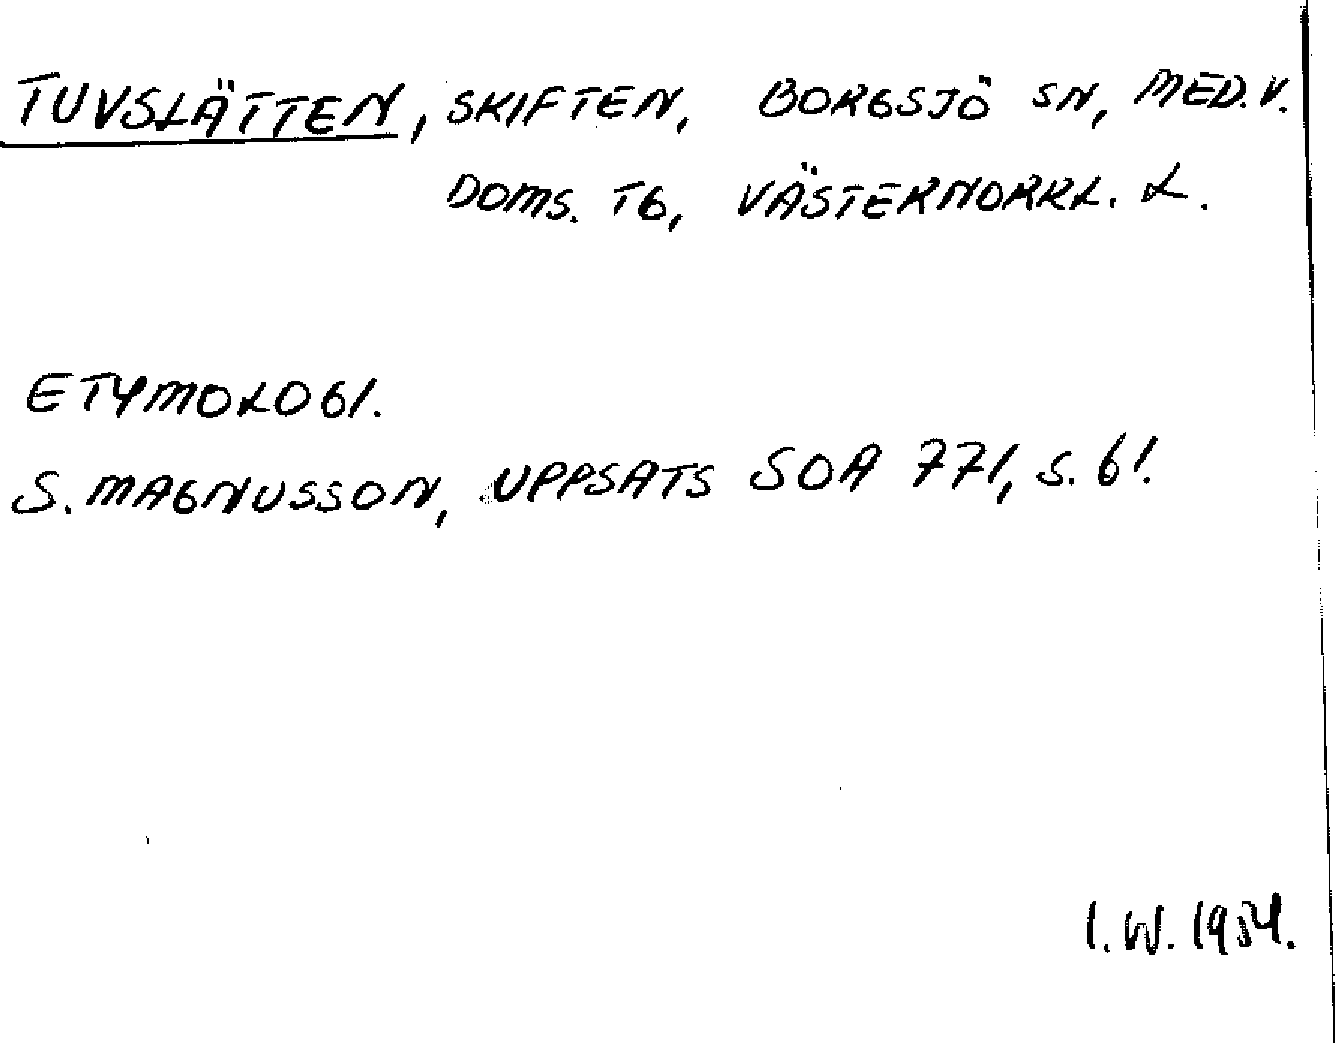 TUVSLÄTTEN, SKIFTEN, BORGSJÖ SN, MED. V.
DOMS. TG, VÄSTERNORRL. L.
ETYMOLOGI.
S. MAGNUSSON, UPPSATS SOA 771, S. 6!
I. W. 1954.